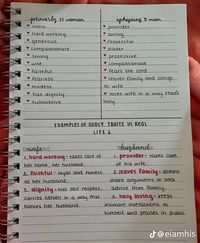 proverbs 31 woman
ephesians 5 man
hard working
generous
compassionate
strong
wise
faithful
fearless
modest
has dignity
submissive
provider
loving
respectful
leader
protective
compassionate
fears the Lord
leaves family and clings
to wife
loves wife in a way that's
holy
EXAMPLES OF GODLY TRAITS IN REAL
LIFE
wife
1. hard working- takes care of
her home, her husband.
2. faithful- loyal and honest
to her husband.
3. dignity- has self respect,
carries herself in a way that
honors her husband.
husband
1. provider- takes care
of his wife.
2. leaves family- doesn't
share arguments or seek
advice from family.
3. holy loving- keeps
intimate interactions to
himself and praises in public
@eiamhis